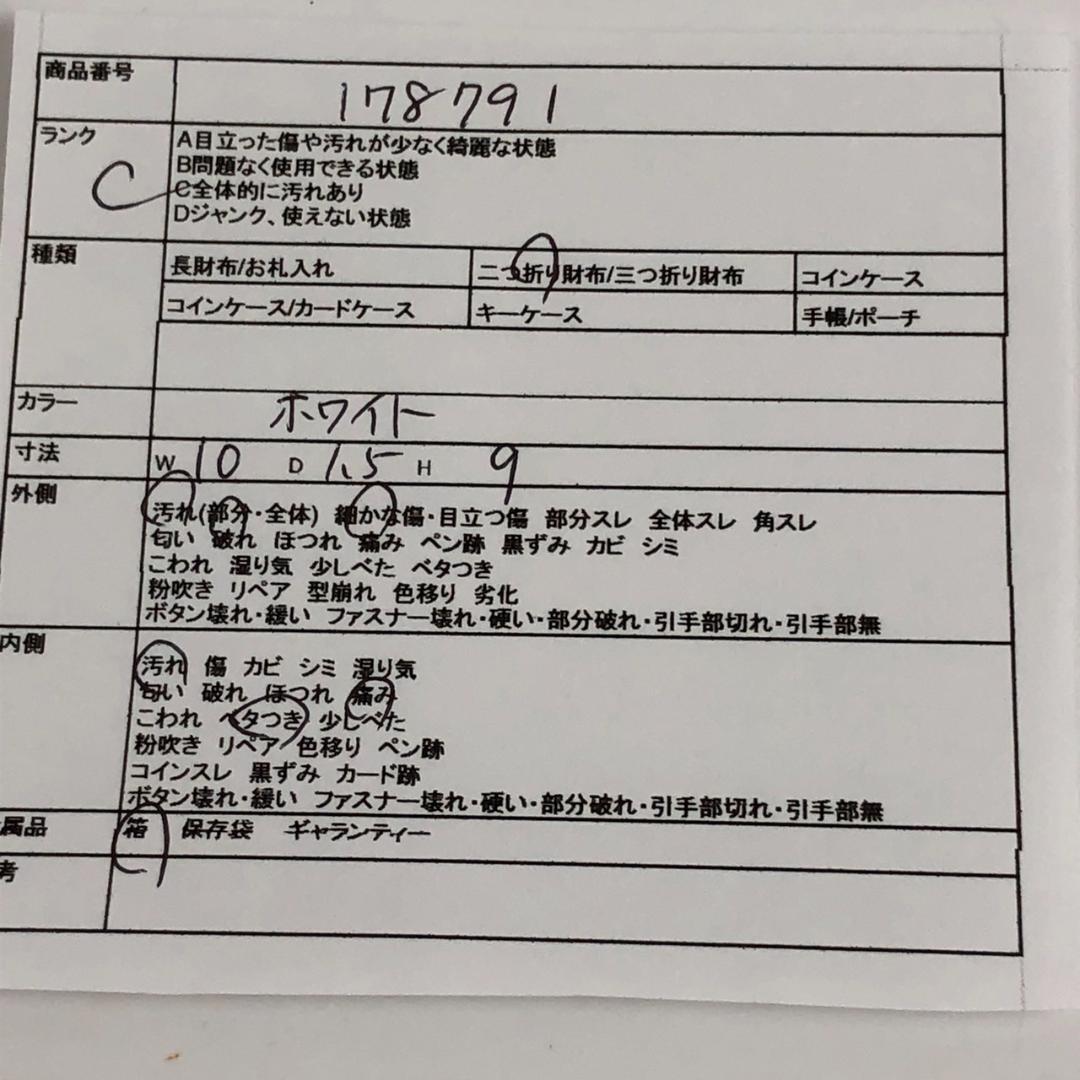 商品番号 178791
ランク C
A目立った傷や汚れが少なく綺麗な状態
B問題なく使用できる状態
C全体的に汚れあり
Dジャンク、使えない状態
種類 長財布/お札入れ 二つ折り財布/三つ折り財布 コインケース
コインケース/カードケース キーケース 手帳/ポーチ
カラー ホワイト
寸法 W 10 D 1.5 H 9
外側
汚れ(部分・全体) 細かな傷・目立つ傷 部分スレ 全体スレ 角スレ
匂い 破れ ほつれ 痛み ペン跡 黒ずみ カビ シミ
こわれ 湿り気 少しべた ベタつき
粉吹き リペア 型崩れ 色移り 劣化
ボタン壊れ・緩い ファスナー壊れ・硬い・部分破れ・引手部切れ・引手部無
内側
汚れ 傷 カビ シミ 湿り気
匂い 破れ ほつれ 痛み
こわれ ベタつき 少しべた
粉吹き リペア 色移り ペン跡
コインスレ 黒ずみ カード跡
ボタン壊れ・緩い ファスナー壊れ・硬い・部分破れ・引手部切れ・引手部無
属品 箱 保存袋 ギャランティー
考